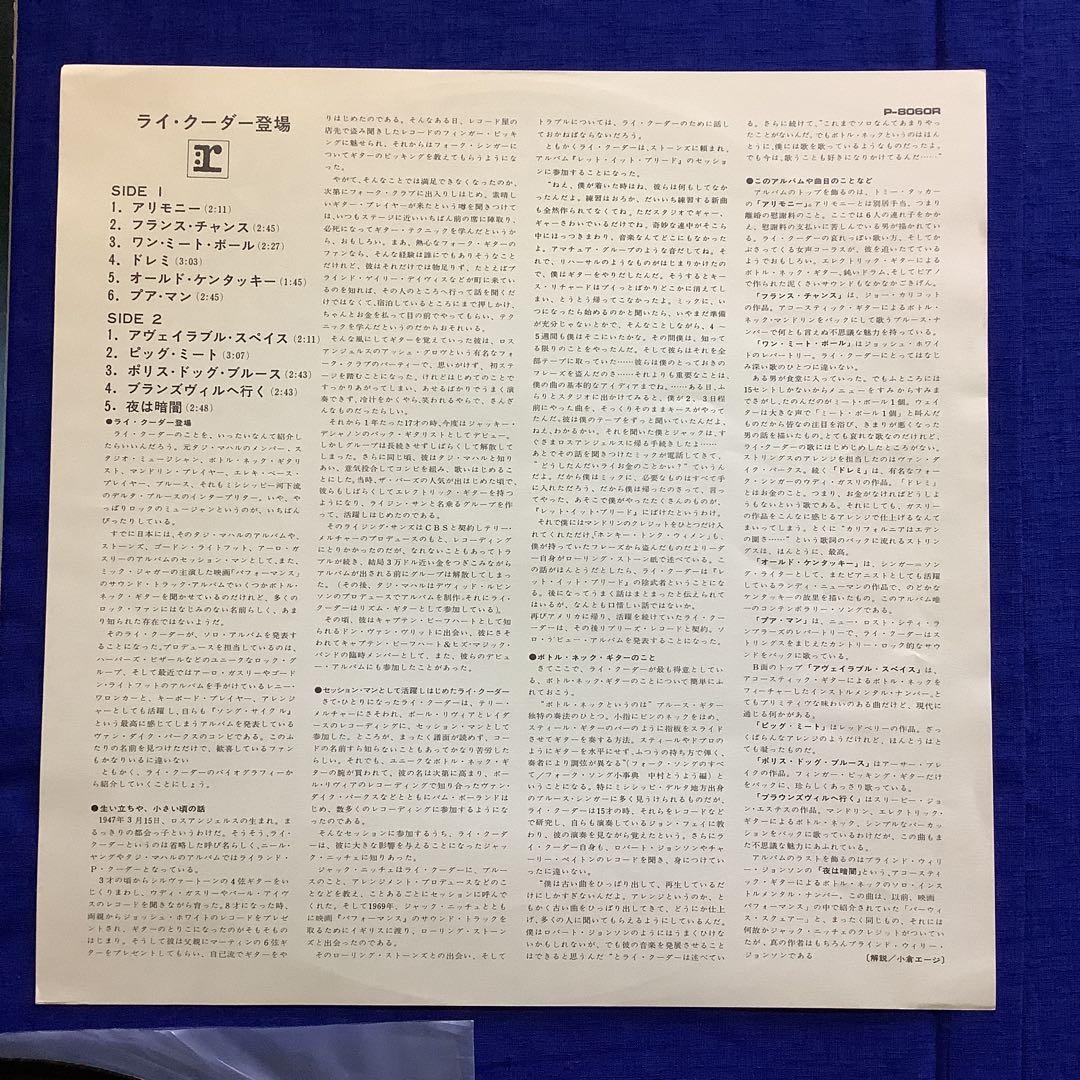 P-8060R
ライ・クーダー登場
r
SIDE 1
1. アリモニー(2:11)
2. フランス・チャンス(2:45)
3. ワン・ミート・ボール(2:27)
4. ドレミ(3:03)
5. オールド・ケンタッキー(1:45)
6. プア・マン(2:45)
SIDE 2
1. アヴェイラブル・スペイス(2:11)
2. ピッグ・ミート(3:07)
3. ポリス・ドッグ・ブルース(2:43)
4. ブランズヴィルへ行く(2:43)
5. 夜は暗闇(2:48)
●ライ・クーダー登場
ライ・クーダーのことを、いったいなんて紹介し
たらいいんだろう。元タジ・マハルのメンバー、ス
タジオ・ミュージシャン、ボトル・ネック・ギタリ
スト、マンドリン・プレイヤー、エレキ・ベース・
プレイヤー、ブルース、それもミシシッピー河下流
のデルタ・ブルースのインタープリター。いや、や
っぱりロックのミュージャンというのが、いちばん
ぴったりしている。
すでに日本には、そのタジ・マハルのアルバムや、
ストーンズ、ゴードン・ライトフット、アーロ・ガ
スリーのアルバムのセッション・マンとして、また、
ミック・ジャガーの主演した映画「パフォーマンス」
のサウンド・トラック・アルバムでいくつかボトル・
ネック・ギターを聞かせているのだけれど、多くの
ロック・ファンにはなじみのない名前らしく、あま
り知られた存在ではないようだ。
そのライ・クーダーが、ソロ・アルバムを発表す
ることになった。プロデュースを担当しているのは、
ハーパーズ・ビザールなどのユニークなロック・グ
ループ、そして最近ではアーロ・ガスリーやゴード
ン・ライトフットのアルバムを手がけているレニー・
ワロンカーと、キーボード・プレイヤー、アレンジ
ャーとしても活躍し、自らも『ソング・サイクル』
という最高に感じてしまうアルバムを発表している
ヴァン・ダイク・パークスのコンビである。このふ
たりの名前を見つけただけで、歓喜しているファン
もかなりいるに違いない
ともかく、ライ・クーダーのバイオグラフィーか
ら紹介していくことにしょう。
●生い立ちや、小さい頃の話
1947年3月15日、ロスアンジェルスの生れ。ま
るっきりの都会っ子というわけだ。そうそう、ライ・
クーダーというのは省略した呼び名らしく、ニール・
ヤングやタジ・マハルのアルバムではライランド・
P・クーダーとなっている。
3才の頃からシルヴァートーンの4弦ギターをい
じくりまわし、ウディ・ガスリーやバール・アイヴ
スのレコードを聞きながら育った。8才になった時、
両親からジョッシュ・ホワイトのレコードをプレゼン
トされ、ギターのとりこになったのがそもそもの
はじまり。そうして彼は父親にマーティンの6弦ギ
ターをプレゼントしてもらい、自己流でギターをや
りはじめたのである。そんなある日、レコード屋の
店先で盗み聞きしたレコードのフィンガー・ピッキ
ングに魅せられ、それからはフォーク・シンガーに
ついてギターのピッキングを教えてもらうようにな
った。
やがて、そんなことでは満足できなくなったのか、
次第にフォーク・クラブに出入りしはじめ、素晴し
いギター・プレイヤーが来たという噂を聞きつけて
は、いつもステージに近いいちばん前の席に陣取り、
必死になってギター・テクニックを学んだというか
ら、おもしろい。まあ、熱心なフォーク・ギターの
ファンなら、そんな経験は誰にでもありそうなこと
だけれど、彼はそれだけでは物足りず、たとえばブ
ラインド・ゲイリー・デイヴィスなどが町に来てい
るのを知れば、その人のところへ行って話を聞くだ
けではなくて、宿泊しているところにまで押しかけ、
ちゃんとお金を払って目の前でやってもらい、テク
ニックを学んだというのだからおそれいる。
そんな風にしてギターを覚えていった彼は、ロス
アンジェルスのアッシュ・グロヴという有名なフォ
ーク・クラブのパーティーで、思いがけず、初ステ
ージを踏むことになった。けれどはじめてのことで
すっかりあがってしまい、あせるばかりでうまく演
奏できず、冷汁をかくやら、笑われるやらで、さんざ
んなものだったらしい。
それから1年たった17才の時、今度はジャッキー・
デシャノンのバック・ギタリストとしてデビュー。
しかしグループは長続きせずしばらくして解散して
しまった。さらに同じ頃、彼はタジ・マハルと知り
あい、意気投合してコンビを組み、歌いはじめるこ
とにした。当時、ザ・バーズの人気が出はじめた頃で、
彼らもしばらくしてエレクトリック・ギターを持つ
ようになり、ライジン・サンと名乗るグループを作
って、活躍しはじめたのである。
そのライジング・サンズはCBSと契約しテリー・
メルチャーのプロデュースのもと、レコーディング
にとりかかったのだが、なれないこともあってトラ
ブルが続き、結局3万ドル近い金をつぎこみながら
アルバムが出される前にグループは解散してしまっ
た。(その後、タジ・マハルはデヴィッド・ルビン
ソンのプロデュースでアルバムを制作。それにライ
・クーダーはリズム・ギターとして参加している)。
その頃、彼はキャプテン・ビーフハートとして知
られるドン・ヴァン・ヴリットに出会い、彼にさそ
われてキャプテン・ビーフハート&ヒズ・マジック・
バンドの臨時メンバーとして、また、彼らのデビュ
ー・アルバムにも参加したことがあった。
●セッション・マンとして活躍しはじめたライ・クーダー
さて・ひとりになったライ・クーダーは、テリー・
メルチャーにさそわれ、ポール・リヴィアとレイダ
ースのレコーディングに、セッション・マンとして
参加した。ところが、まったく譜面が読めず、コー
ドの名前すら知らないこともあってかなり苦労した
らしい。それでも、ユニークなボトル・ネック・ギ
ターの腕が買われて、彼の名は次第に高まり、ポー
ル・リヴィアのレコーディングで知り合ったヴァン・
ダイク・パークスなどとともにパム・ポーランドは
じめ、数多くのレコーディングに参加するようにな
ったのである。
そんなセッションに参加するうち、ライ・クーダ
ーは、彼に大きな影響を与えることになったジャッ
ク・ニッチェに知りあった。
ジャック・ニッチェはライ・クーダーに、ブルー
スのこと、アレンジメント・プロデュースなどのこ
となどを教え、ことあるごとにセッションに呼んで
くれた。そして1969年、ジャック・ニッチェととも
に映画『パフォーマンス』のサウンド・トラックを
取るためにイギリスに渡り、ローリング・ストーン
ズと出会ったのである。
そのローリング・ストーンズとの出会い、そして
トラブルについては、ライ・クーダーのために話し
ておかねばならないだろう。
ともかくライ・クーダーは、ストーンズに頼まれ、
アルバム『レット・イット・ブリード』のセッショ
ンに参加することになった。
“ねえ、僕が着いた時はね、彼らは何もしてなか
ったんだよ。練習はおろか、だいいち練習する新曲
も全然作られてなくてね。ただスタジオでギャー・
ギャーさわいでいるだけでね。奇妙な連中がそこら
中にはっつきまわり、音楽なんてどこにもなかった
よ。アマチュア・グループのような音だしてね。そ
れで、リハーサルのようなものがはじまりかけたの
で、僕はギターをやりだしたんだ。そうするとキー
ス・リチャードはプイっとばかりどこかに消えてし
まい、とうとう帰ってこなかったよ。ミックに、い
つになったら始めるのかと聞いたら、いやまだ準備
が充分じゃないとかで、そんなことしながら、4〜
5週間も僕はそこにいたかな。その間僕は、知って
る限りのことをやったんだ。そして彼らはそれを全
部テープに取っていった……彼らは僕のとっておき
のフレーズを盗んだのさ……それよりも重要なことは、
僕の曲の基本的なアイディアまでね。……ある日、ふ
らりとスタジオに出かけてみると、僕が2、3日程
前にやった曲を、そっくりそのままキースがやって
たんだ。彼は僕のテープをずっと聞いていたんだよ、
ねえ、わかるかい。それを聞いた僕とジャックは、す
ぐさまロスアンジェルスに帰る手続きしたよ……
あとでその話を聞きつけたミックが電話してきて、
“どうしたんだいライお金のことかい？”ていうん
だよ。だから僕はミックに、必要なものはすべて手
に入れただろう、だから僕は帰ったのさって、言っ
てやった、あそこで僕がやったたくさんのものが、
『レット・イット・ブリード』にばけたというわけ。
それで僕にはマンドリンのクレジットをひとつだけ入
れてくれただけ、「ホンキー・トンク・ウィメン」も、
僕が持っていたフレーズから盗んだものだよリーダ
ー自身がローリング・ストーン紙で述べている。こ
の話がほんとうだとしたら、ライ・クーダーは『レ
ット・イット・ブリード』の陰武者ということにな
る。後になってうまく話はまとまったと伝えられて
はいるが、なんとも口惜しい話ではないか。
再びアメリカに帰り、活躍を続けていたライ・ク
ーダーは、その後リプリーズ・レコードと契約。ソ
ロ・デビュー・アルバムを発表することになった。
●ボトル・ネック・ギターのこと
さてここで、ライ・クーダーが最も得意としてい
る、ボトル・ネック・ギターのことについて簡単にふ
れておこう。
“ボトル・ネックというのは” ブルース・ギター
独特の奏法のひとつ。小指にビンのネックをはめ、
スティール・ギターのバーのように指板をスライド
させてギターを奏する方法。スティールやドブロの
ようにギターを水平にせず、ふつうの持ち方で弾く、
奏者により調弦が異なる”(フォーク・ソングのすべ
て/フォーク・ソング小事典 中村とうよう編)とい
うことになる。特にミシシッピ・デルタ地方出身の
ブルース・シンガーに多く見うけられるものだが、
ライ・クーダーは15才の時、それらをレコードなど
で研究し、自らも演奏しているジョン・フェイに教
わり、彼の演奏を見ながら覚えたという。さらにラ
イ・クーダー自身も、ロバート・ジョンソンやチャ
ーリー・ペイトンのレコードを聞き、身につけてい
ったに違いない。
“僕は古い曲をひっぱり出して、再生しているだ
けにしかすぎないんだよ。アレンジというのか、と
もかく古い曲をひっぱり出してきて、どうにか仕上
げ、多くの人に聞いてもらえるようにしているんだ。
僕はロバート・ジョンソンのようにはうまくひけな
いかもしれないが、でも彼の音楽を発展させること
はできると思うんだ”とライ・クーダーは述べてい
る。さらに続けて、“これまでソロなんてあまりやっ
たことがないんだ。でもボトル・ネックというのはほん
とうに、僕には歌を歌っているようなものだったよ。
でも今は、歌うことも好きになりかけてるんだ……”
●このアルバムや曲目のことなど
アルバムのトップを飾るのは、トミー・タッカー
の「アリモニー」。アリモニーとは別居手当、つまり
離婚の慰謝料のこと。ここでは6人の連れ子をかか
え、慰謝料の支払いに苦しんでいる男が描かれてい
る。ライ・クーダーの哀れっぽい歌い方、そしてか
ぶさってくる女声コーラスが、彼を追いたてている
ようでおもしろい。エレクトリック・ギターによる
ボトル・ネック・ギター、鈍いドラム、そしてピアノ
で作られた泥くさいサウンドもなかなかごきげん。
「フランス・チャンス」は、ジョー・カリコット
の作品。アコースティック・ギターによるボトル・
ネック、マンドリンをバックにして歌うブルース・ナ
ンバーで何とも言えぬ不思議な魅力を持っている。
「ワン・ミート・ボール」はジョッシュ・ホワイ
トのレパートリー。ライ・クーダーにとってはなじ
み深い歌のひとつに違いない。
ある男が食堂に入っていった。でもふところには
15セントしかないからメニューをすみからすみま
でさがし、たのんだのがミート・ボール1個。ウェイ
ターは大きな声で「ミート・ボール1個」と叫んだ
ものだから皆なの注目を浴び、きまりが悪くなった
男の話を描いたもの。とても哀れな歌なのだけれど、
ライ・クーダーの歌にはじめじめしたところがない。
ストリングスのアレンジを担当したのはヴァン・ダ
イク・パークス。続く「ドレミ」は、有名なフォー
ク・シンガーのウディ・ガスリの作品。「ドレミ」
とはお金のこと。つまり、お金がなければどうしよ
うもないという歌である。それにしても、ガスリー
の作品をこんなに感じるアレンジで仕上げるなんて
まいってしまう。とくに“カリフォルニアはエデン
の園さ……”という歌詞のバックに流れるストリン
グスは、ほんとうに、最高。
「オールド・ケンタッキー」は、シンガー=ソン
グ・ライターとして、またピアニストとしても活躍
しているランディ・ニューマンの作品で、のどかな
ケンタッキーの故里を描いたもの。このアルバム唯
一のコンテンポラリー・ソングである。
「プア・マン」は、ニュー・ロスト・シティ・ラ
ンブラーズのレパートリーで、ライ・クーダーはス
トリングスをまじえたカントリー・ロック的なサウ
ンドをバックに歌っている。
B面のトップ「アヴェイラブル・スペイス」は、
アコースティック・ギターによるボトル・ネックを
フィーチャーしたインストルメンタル・ナンバー。と
てもプリミティヴな味わいのある曲だけど、現代に
通じる何かがある。
「ピッグ・ミート」はレッドベリーの作品。ざっ
くばらんなアレンジのようだけれど、ほんとうはと
ても凝ったものだ。
「ポリス・ドッグ・ブルース」はアーサー・ブレ
イクの作品。フィンガー・ピッキング・ギターだけ
をバックに、珍らしくあっさり歌っている。
「ブラウンズヴィルへ行く」はスリーピー・ジョ
ン・エステスの作品。マンドリン、エレクトリック・
ギターによるボトル・ネック、シンプルなパーカッ
ションをバックに歌っているわけだが、この曲もま
た不思議な魅力にあふれている。
アルバムのラストを飾るのはブラインド・ウィリ
ー・ジョンソンの「夜は暗闇」という、アコーステ
ィック・ギターによるボトル・ネックのソロ・インス
トルメンタル・ナンバー。この曲は、以前、映画『
パフォーマンス』の中で紹介されていた「パーウィ
ス・スクェアー」と、まったく同じもの。それには
何故かジャック・ニッチェのクレジットがついてい
たが、真の作者はもちろんブラインド・ウィリー・
ジョンソンである
〔解説/小倉エージ〕